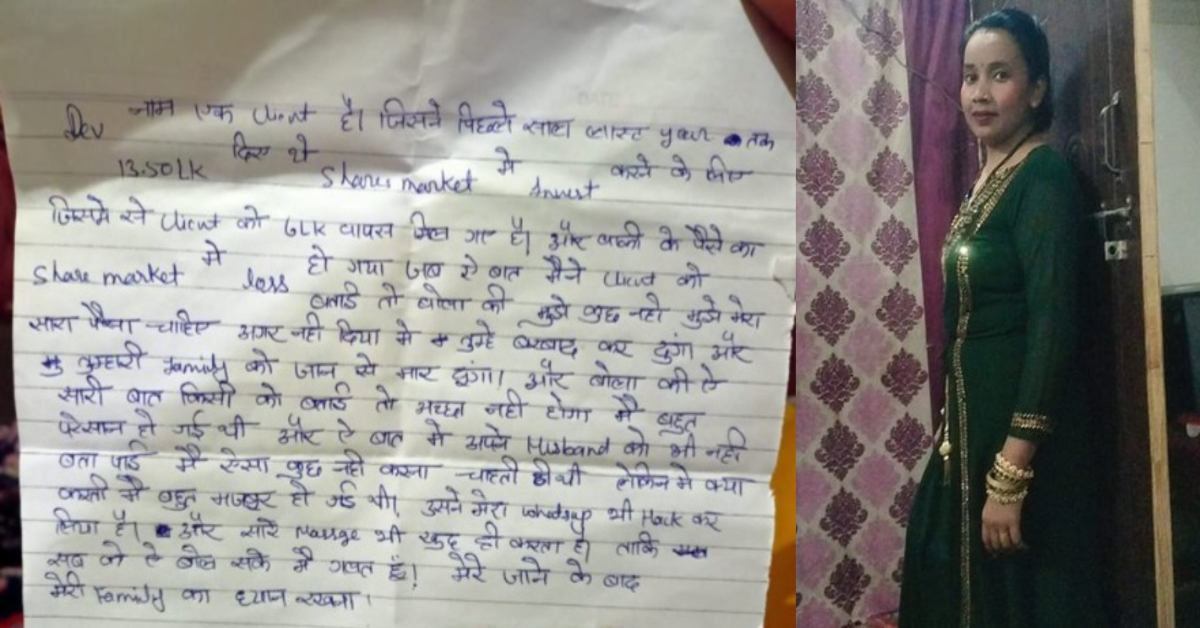 Dev नाम एक client है। जिसने पिछले साल लास्ट year तक
13.50LK दिए थे Shares market मे Invest करने के लिए
जिसमे से Client को 6LK वापस मिल गए है। और बाकी के पैसे का
Share market मे loss हो गया जब ऐ बात मैने client को
बताई तो बोला की मुझे कुछ नही मुझे मेरा
सारा पैसा चाहिए अगर नही दिया मे तुम्हे बरबाद कर दुंगा और
तुम्हारी Family को जान से मार दुगा। और बोला की ऐ
सारी बात किसी को बताई तो अच्छा नही होगा मै बहुत
परेसान हो गई थी और ऐ बात मे अपने Husband को भी नही
बता पाई मै ऐसा कुछ नही करना चाहती थी लेकिन मे क्या
करती मै बहुत मजबुर हो गई थी। उसने मेरा whatsap भी Hack कर
लिया है। और सारे Massge भी खुद ही करता है। ताकि
सब को ऐ बोल सके मै गलत हुँ! मेरे जाने के बाद
मेरी Family का ध्यान रखना।